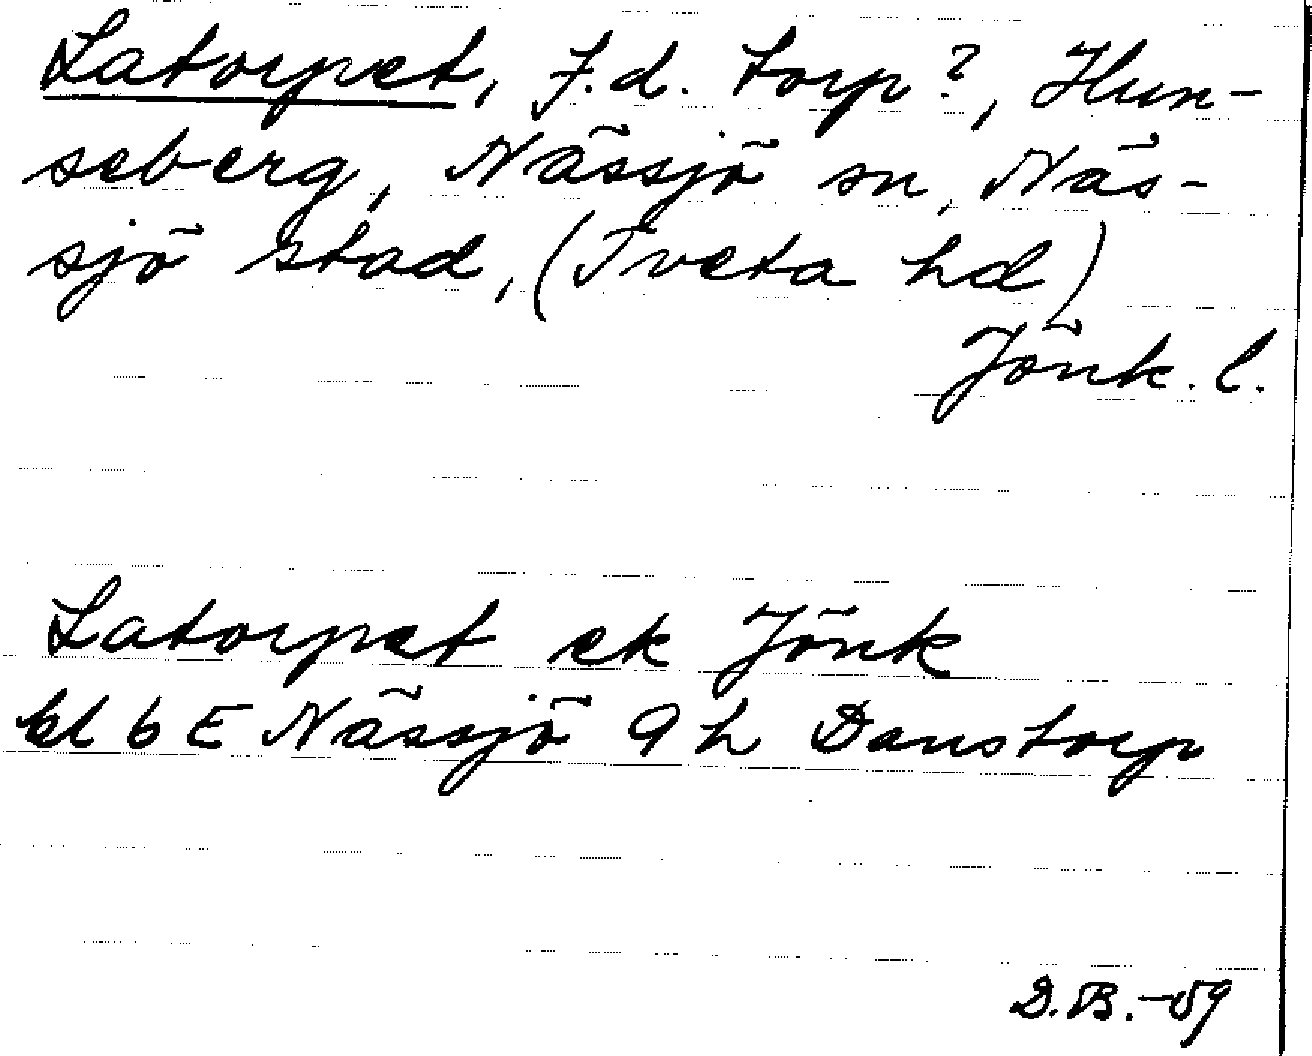 Latorpet, f.d. torp?, Hun-
seberg, Nässjö sn, Näs-
sjö stad, (Tveta hd)
Jönk. l.
Latorpet ek Jönk
bl 6 E Nässjö 9 h Danstorp
D.B.-59